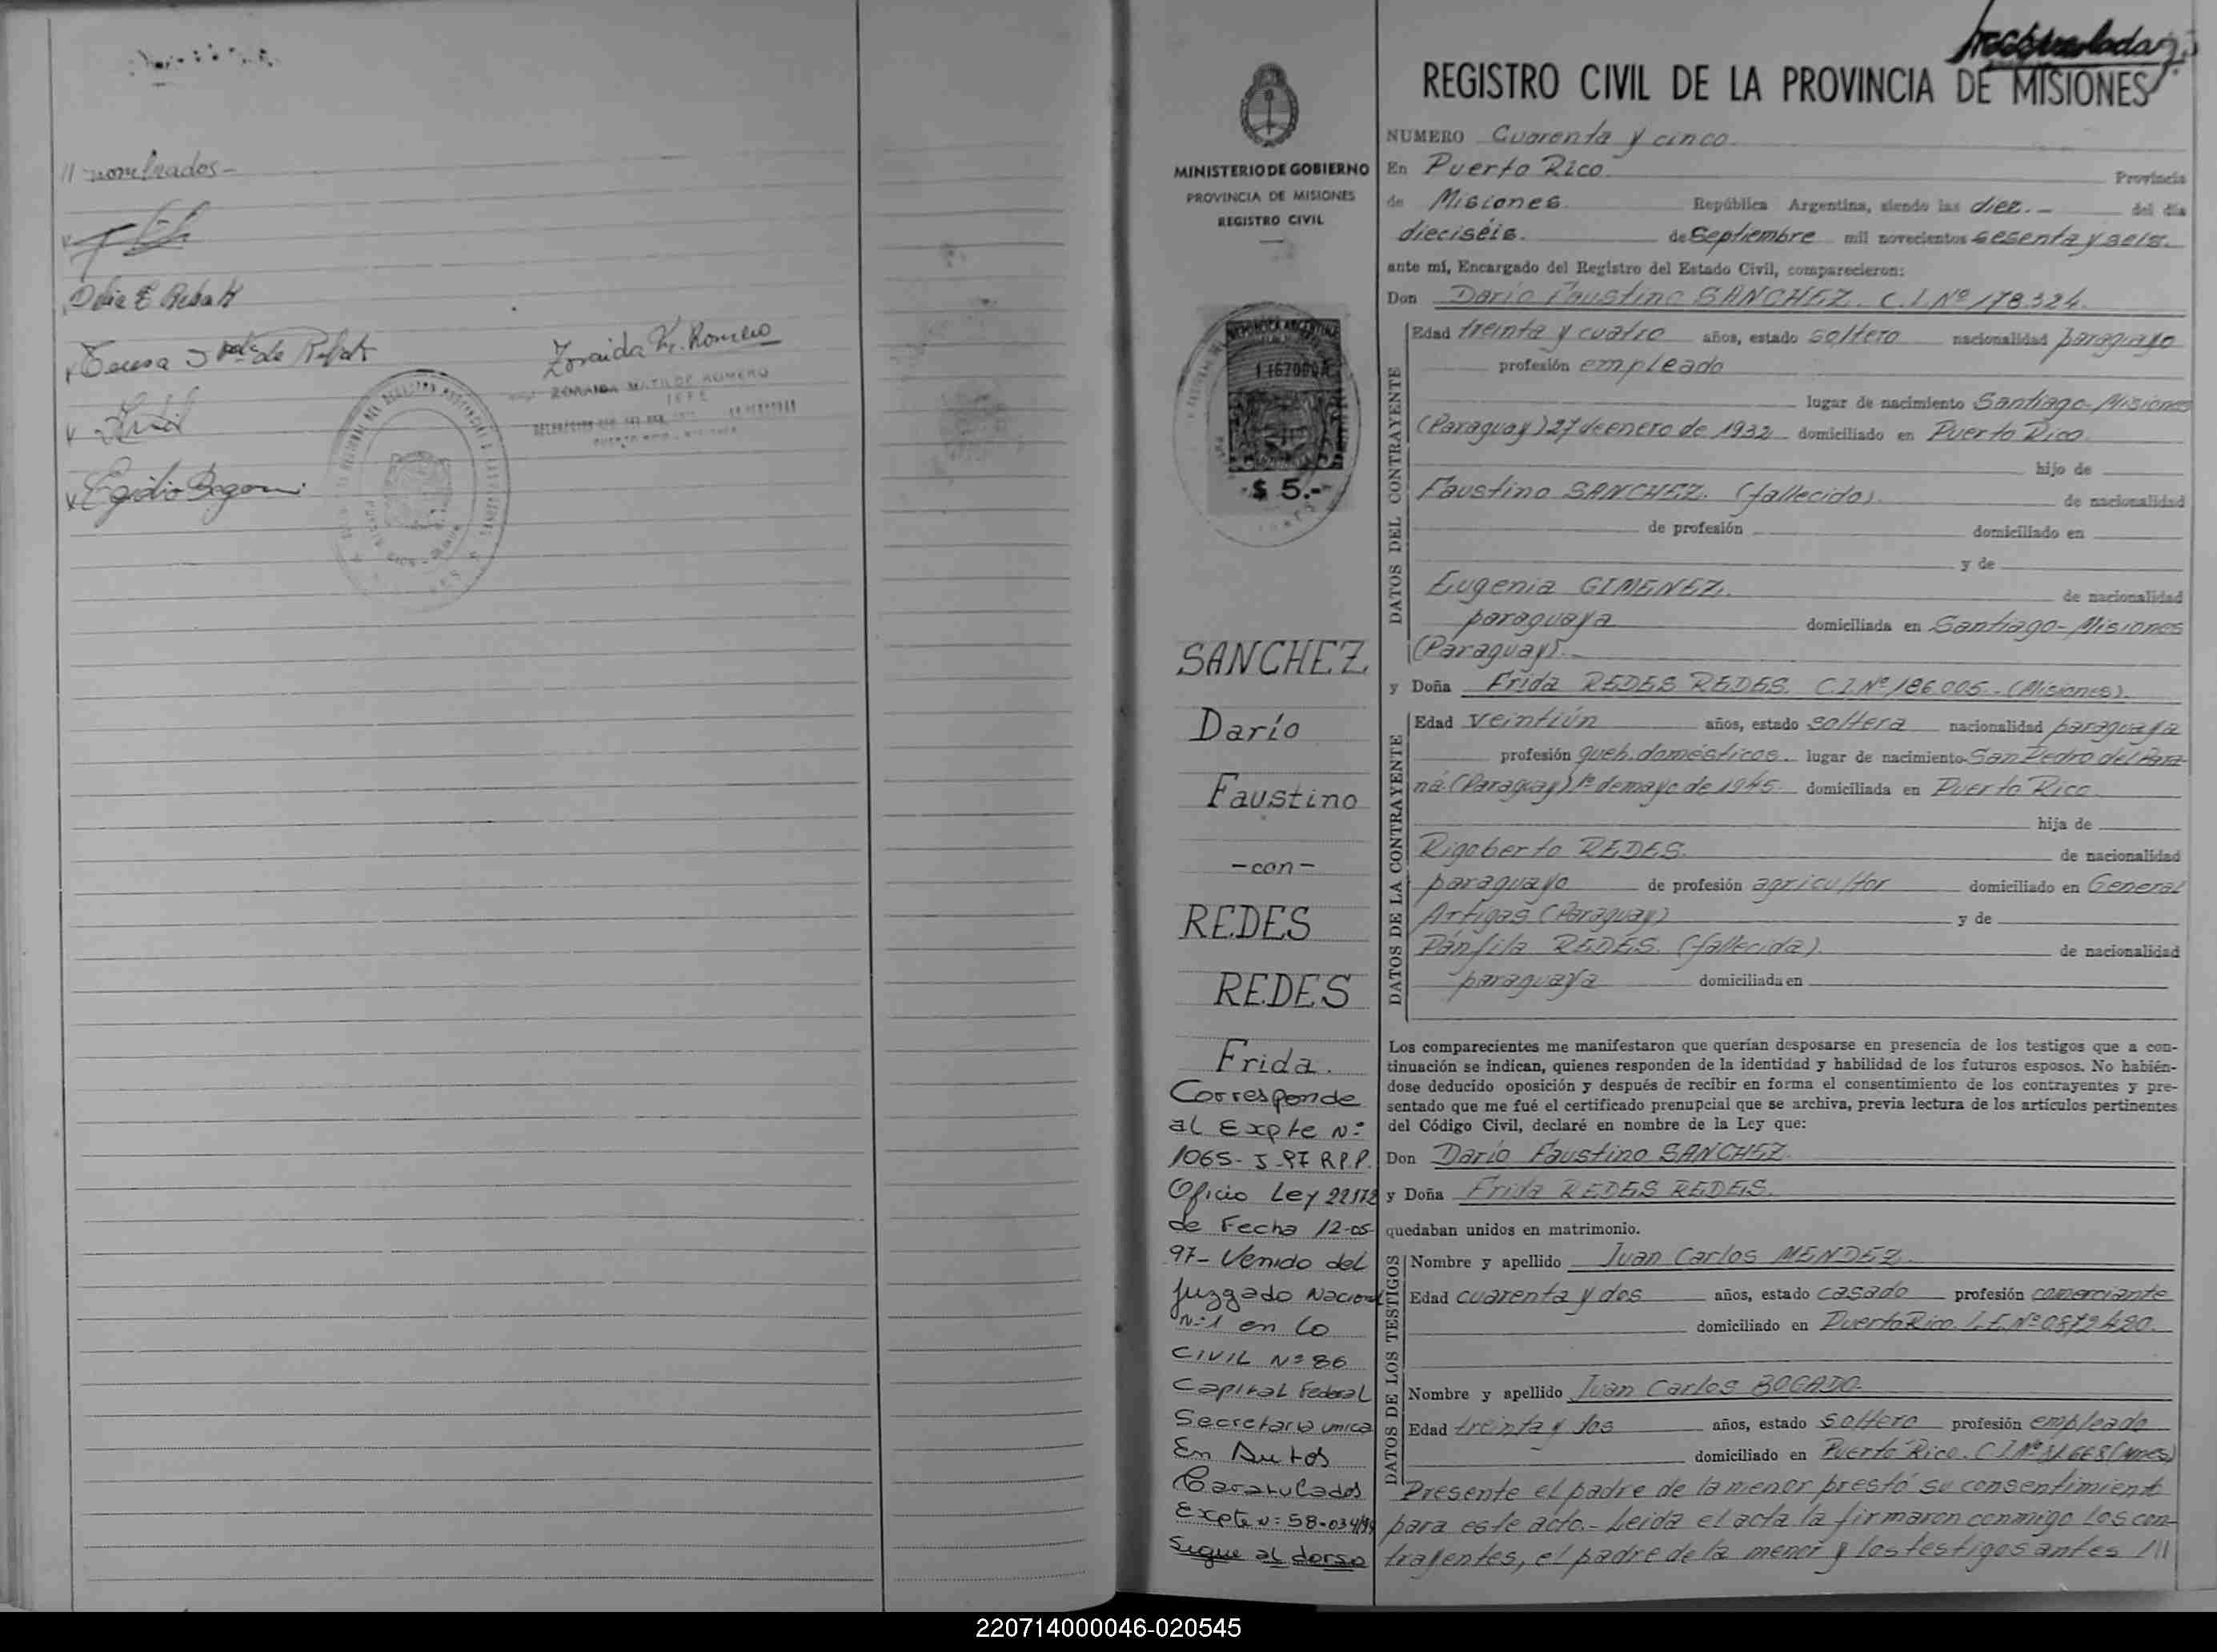 // nombrados-
Delia E Rebatt
Zoraida M. Romero
ZORAIDA MATILDE ROMERO
JEFE
Egidio
MINISTERIO DE GOBIERNO
PROVINCIA DE MISIONES
REGISTRO CIVIL
$ 5.-
SANCHEZ
Darío
Faustino
-con-
REDES
REDES
Frida.
Corresponde
al Expte Nº
1065-J-97 R.P.P.
Oficio Ley 22172
de Fecha 12-05-
97- Venido del
Juzgado Nacional
Nº 1 en lo
CIVIL Nº 86
Capital Federal
Secretaria unica
En Autos
Caratulados
Expte Nº: 58-034/94
Sigue al dorso
REGISTRO CIVIL DE LA PROVINCIA DE MISIONES
NUMERO Cuarenta y cinco.
En Puerto Rico Provincia
de Misiones República Argentina, siendo las diez.- del día
dieciséis. de Septiembre mil novecientos sesenta y seis.
ante mí, Encargado del Registro del Estado Civil, comparecieron:
Don Darío Faustino SANCHEZ. C.I.Nº 178.324.
DATOS DEL CONTRAYENTE
Edad treinta y cuatro años, estado soltero nacionalidad paraguayo
profesión empleado
lugar de nacimiento Santiago-Misiones
(Paraguay) 27 de enero de 1932 domiciliado en Puerto Rico
hijo de
Faustino SANCHEZ. (fallecido). de nacionalidad
de profesión domiciliado en
y de
Eugenia GIMENEZ. de nacionalidad
paraguaya domiciliada en Santiago-Misiones
(Paraguay).-
y Doña Frida REDES REDES. C.I.Nº 186.005.-(Misiones).
DATOS DE LA CONTRAYENTE
Edad veintiún años, estado soltera nacionalidad paraguaya
profesión queh. domésticos. lugar de nacimiento San Pedro del Para-
ná (Paraguay) 1º de mayo de 1945 domiciliada en Puerto Rico
hija de
Rigoberto REDES. de nacionalidad
paraguayo de profesión agricultor domiciliado en General
Artigas (Paraguay) y de
Pánfila REDES. (fallecida). de nacionalidad
paraguaya domiciliada en
Los comparecientes me manifestaron que querían desposarse en presencia de los testigos que a con-
tinuación se indican, quienes responden de la identidad y habilidad de los futuros esposos. No habién-
dose deducido oposición y después de recibir en forma el consentimiento de los contrayentes y pre-
sentado que me fué el certificado prenupcial que se archiva, previa lectura de los artículos pertinentes
del Código Civil, declaré en nombre de la Ley que:
Don Darío Faustino SANCHEZ.
y Doña Frida REDES REDES.
quedaban unidos en matrimonio.
DATOS DE LOS TESTIGOS
Nombre y apellido Juan Carlos MENDEZ.
Edad cuarenta y dos años, estado casado profesión comerciante
domiciliado en Puerto Rico. L.E.Nº 0.872.420.
Nombre y apellido Juan Carlos BOGADO.
Edad treinta y dos años, estado soltero profesión empleado
domiciliado en Puerto Rico. C.I.Nº 81.668 (Mnes)
Presente el padre de la menor prestó su consentimiento
para este acto.- Leida el acta la firmaron conmigo los con-
trayentes, el padre de la menor y los testigos antes ///
220714000046-020545